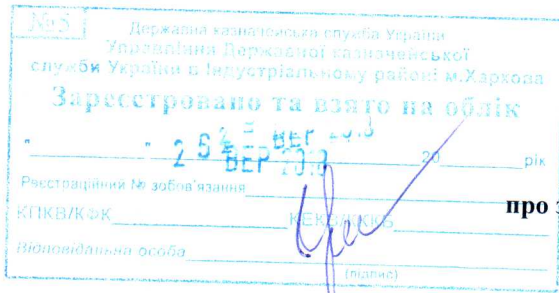 №5
Державна казначейська служба України
Управління Державної казначейської
служби України в Індустріальному районі м.Харкова
Зареєстровано та взято на облік
" " 20 рік
Реєстраційний № зобов'язання
про
КПКВ/КФК КЕКВ/ККБ
Відповідальна особа
(підпис)